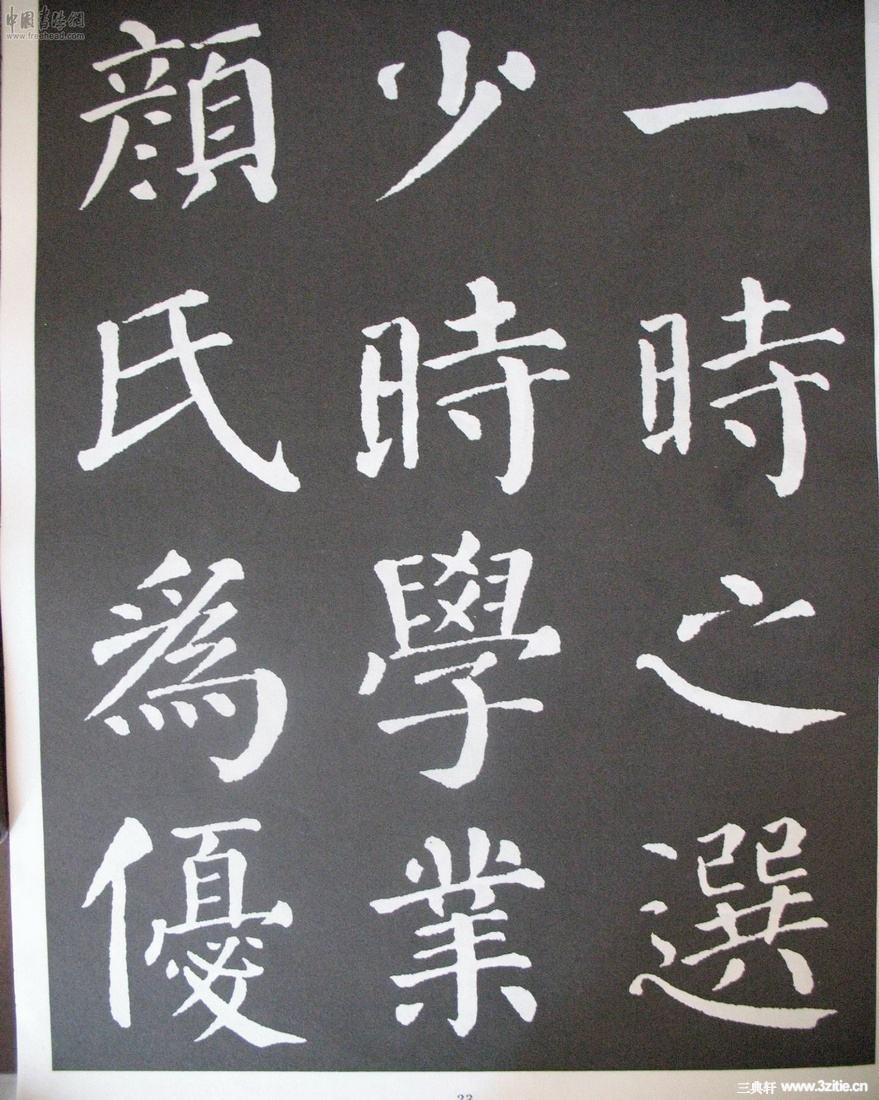 一時之選
少時學業
顔氏爲優
中国书法网
www.freehead.com
三典轩 www.3zitie.cn